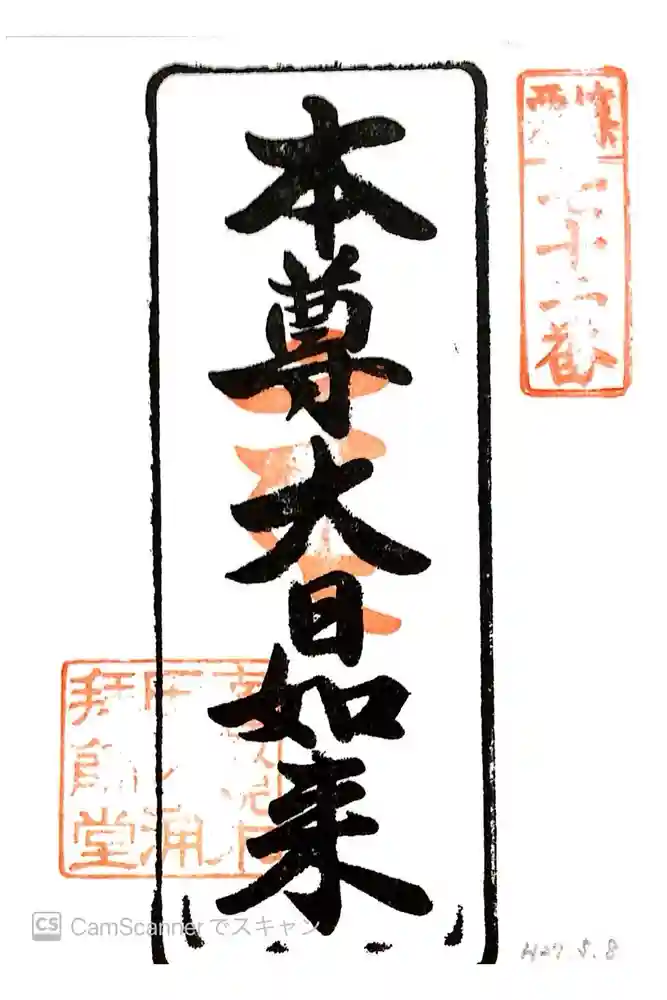 篠栗
七十二番
本尊大日如来
田ノ浦
拝師堂
CS CamScannerでスキャン
H27.5.8